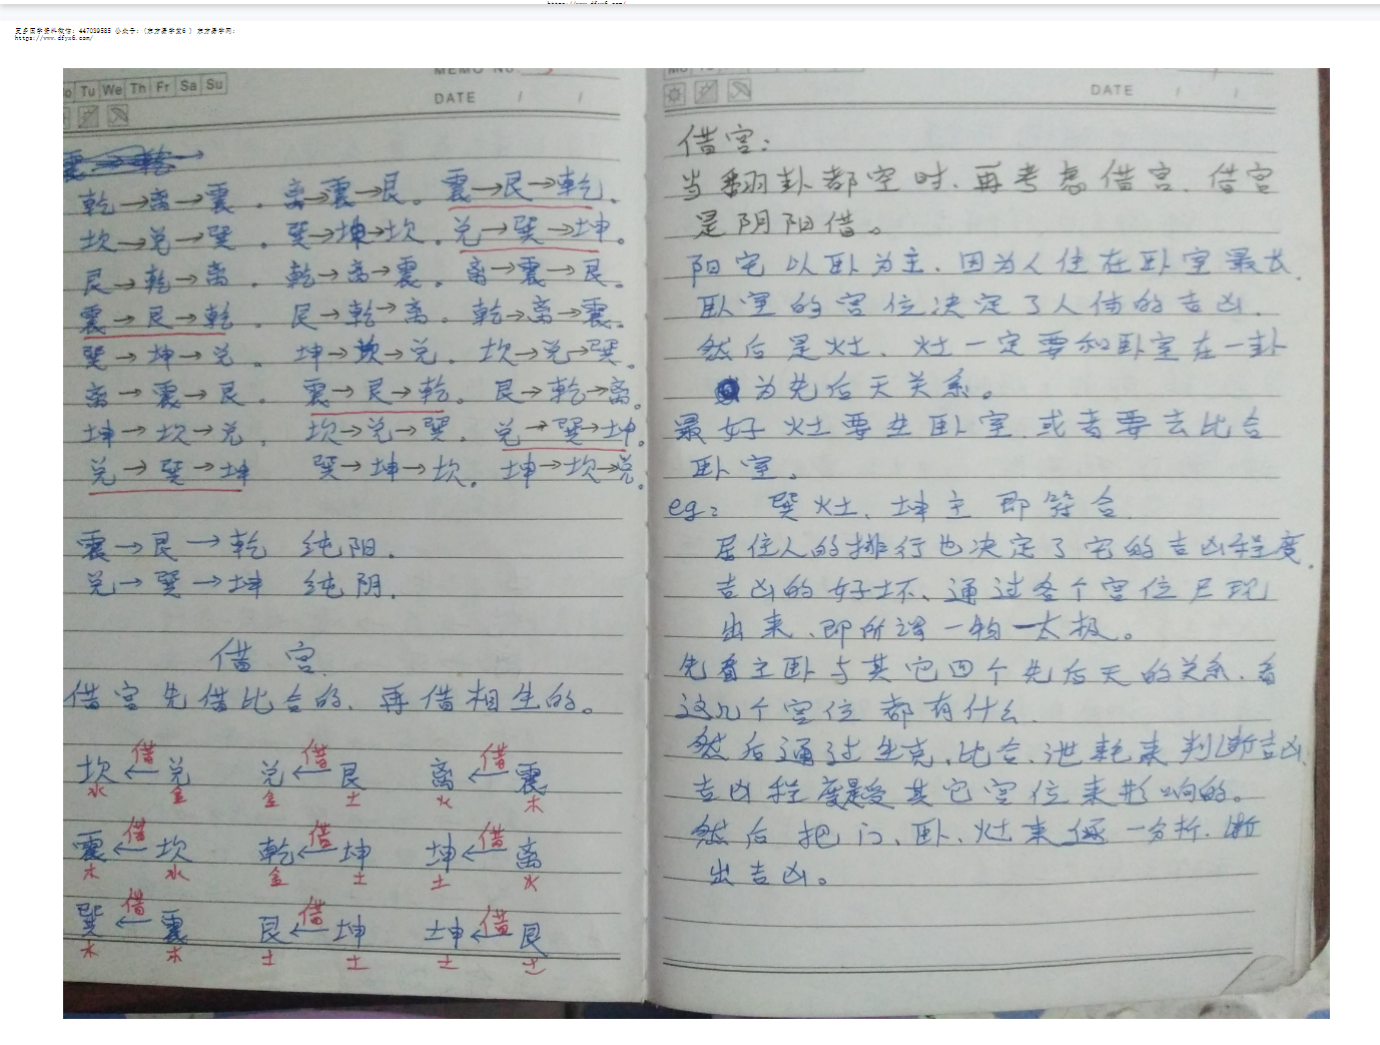 https://www.dfyx6.com/
更多国学资料微信：447039585 公众号：（东方易学堂6 ）东方易学网：
https://www.dfyx6.com/
Tu We Th Fr Sa Su
MEMO NO.
DATE / /
乾→离→震。离→震→艮。震→艮→乾。
坎→兑→巽。巽→坤→坎。兑→巽→坤。
艮→乾→离。乾→离→震。离→震→艮。
震→艮→乾。艮→乾→离。乾→离→震。
巽→坤→兑。坤→坎→兑。坎→兑→巽。
离→震→艮。震→艮→乾。艮→乾→离。
坤→坎→兑。坎→兑→巽。兑→巽→坤。
兑→巽→坤 巽→坤→坎。坤→坎→兑。
震→艮→乾 纯阳.
兑→巽→坤 纯阴.
借宫.
借宫先借比合的.再借相生的。
坎←借兑 兑←借艮 离←借震
水 金 金 土 火 木
震←借坎 乾←借坤 坤←借离
木 水 金 土 土 火
巽←借震 艮←借坤 坤←借艮
木 木 土 土 土 土
DATE / /
借宫：
当翻卦都空时.再考虑借宫.借宫
是阴阳借。
阳宅以卧为主.因为人住在卧室最长.
卧室的宫位决定了人伤的吉凶.
然后是灶.灶一定要和卧室在一卦
为先后天关系。
最好灶要生卧室.或者要去比合
卧室。
eg: 巽灶.坤主即符合
居住人的排行也决定了宅的吉凶程度.
吉凶的好坏、通过各个宫位尸现
出来、即所谓一物一太极。
先看主卧与其它四个先后天的关系.看
这几个宫位都有什么.
然后通过生克.比合.泄耗来判断吉凶.
吉凶程度是受其它宫位来形响的。
然后把门、卧、灶来逐一分析.断
出吉凶。